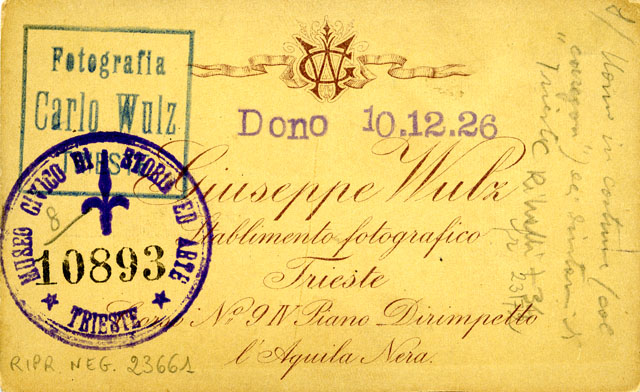 Fotografia
Carlo Wulz
TRIESTE
Dono 10.12.26
Giuseppe Wulz
Stablimento fotografico
Trieste
Nº 9 IV Piano Dirimpetto
l'Aquila Nera.
MUSEO CIVICO DI STORIA ED ARTE
8
10893
TRIESTE
RIPR. NEG. 23661
Uomo in costume
Trieste